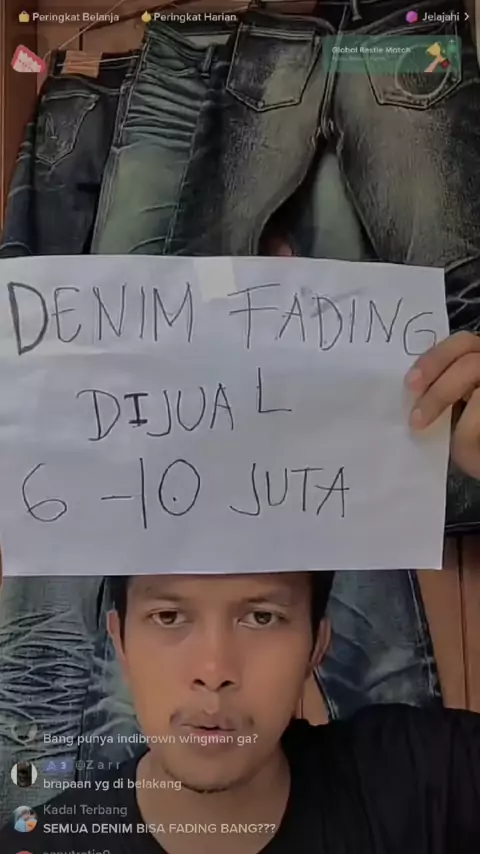 Peringkat Belanja
Peringkat Harian
Jelajahi
Global Bestie Match
DENIM FADING
DIJUAL
6 - 10 JUTA
Bang punya indibrown wingman ga?
A 3 @Z a r r
brapaan yg di belakang
Kadal Terbang
SEMUA DENIM BISA FADING BANG???